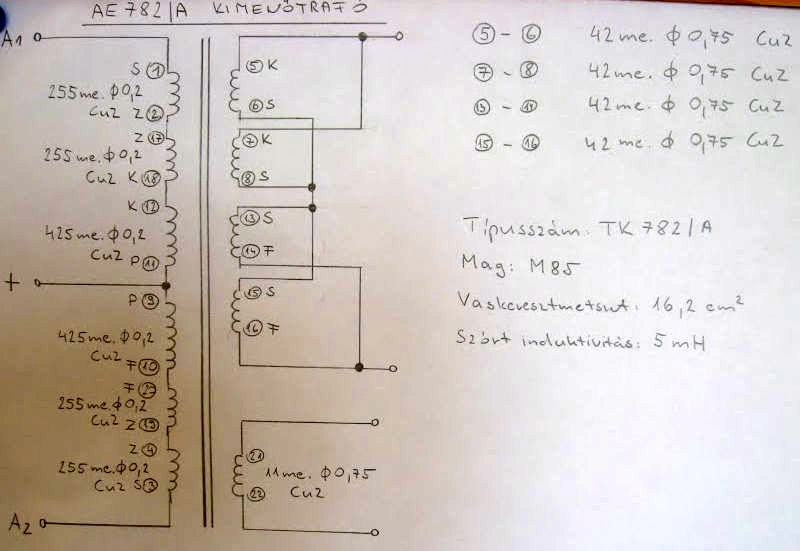 AE 782/A KIMENŐTRAFÓ
A1
S ①
255 me. ϕ0,2
CuZ Z ②
Z ⑰
255 me. ϕ0,2
CuZ K ⑱
K ⑫
425 me. ϕ0,2
CuZ P ⑪
+
P ⑨
425 me. ϕ0,2
CuZ F ⑩
F
255 me. ϕ0,2
CuZ Z ⑲
Z ④
255 me. ϕ0,2
CuZ S ③
A2
⑤ K
⑥ S
⑦ K
⑧ S
⑬ S
⑭ F
⑮ S
⑯ F
㉑
11 me. ϕ0,75
CuZ
㉒
⑤ - ⑥ 42 me. ϕ 0,75 CuZ
⑦ - ⑧ 42 me. ϕ 0,75 CuZ
⑬ - ⑭ 42 me. ϕ 0,75 CuZ
⑮ - ⑯ 42 me. ϕ 0,75 CuZ
Típusszám: TK 782/A
Mag: M85
Vaskeresztmetszet: 16,2 cm²
Szórt induktivitás: 5 mH